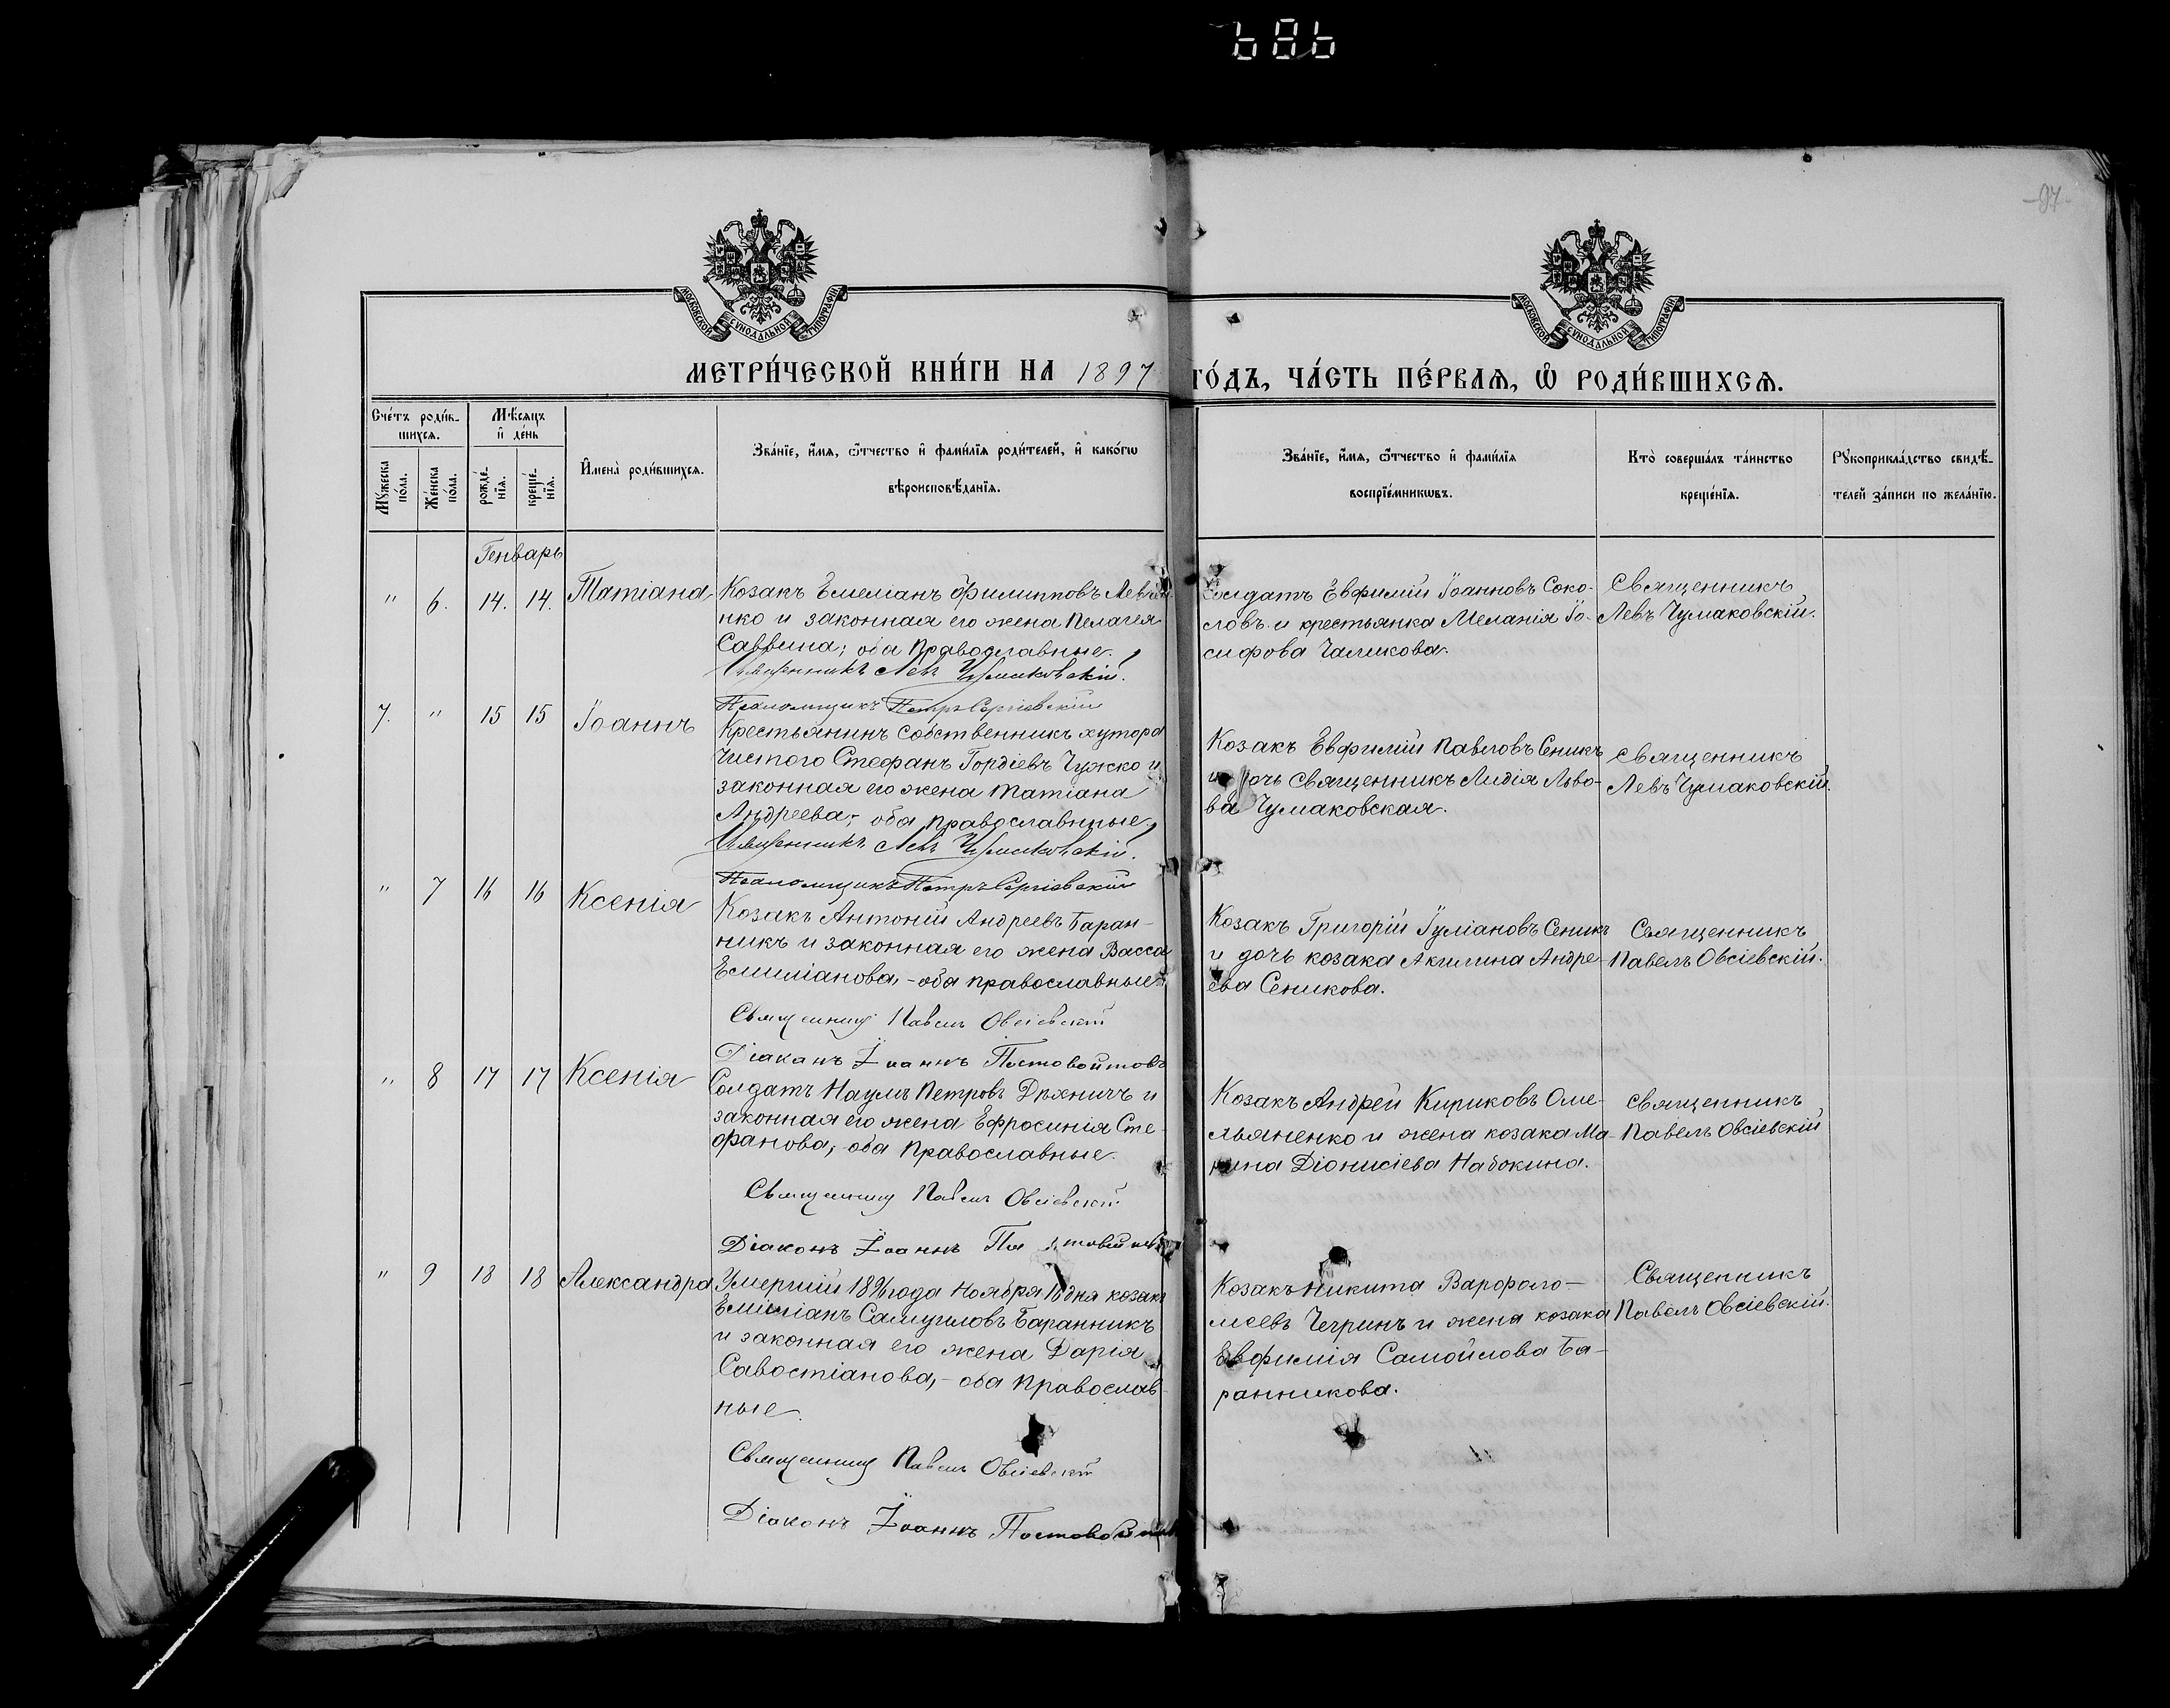 686
97
МОСКОВСКОЙ СѴНОДАЛЬНОЙ ТИПОГРАФІИ
МОСКОВСКОЙ СѴНОДАЛЬНОЙ ТИПОГРАФІИ
МЕТРИ́ЧЕСКОЙ КНИ́ГИ НА 1897 ГО́ДЪ, ЧА́СТЬ ПЕ́РВАѦ, Ѡ҆ РОДИ́ВШИХСѦ.
Сче́тъ роди́в-
шихсѧ.
Мꙋ́жеска по́ла.
Же́нска по́ла.
Мѣ́сѧцъ
и҆ де́нь
рожде́-
нїѧ.
креще́-
нїѧ.
И҆мена̀ роди́вшихсѧ.
Зва́нїе, и҆́мѧ, ѻ҆́тчество и҆ фами́лїѧ роди́телей, и҆ како́гѡ
вѣроисповѣ́данїѧ.
Зва́нїе, и҆́мѧ, ѻ҆́тчество и҆ фами́лїѧ
воспрїе́мникѡвъ.
Кто̀ соверша́лъ та́инство
креще́нїѧ.
Рꙋкоприкла́дство свидѣ́-
телей за́писи по жела́нїю.
Генварь
" 6. 14. 14. Татіана
Козакъ Емеліанъ Филипповъ Левче-
нко и законная его жена Пелагея
Саввина; оба Православные.
Священникъ Левъ Чумаковскій.
Псаломщикъ Петръ Сергіевскій
Солдатъ Евфимій Іоанновъ Соко-
ловъ и крестьянка Меланія Іо-
сифова Чаликова.
Священникъ
Левъ Чумаковскій.
7. " 15 15 Іоаннъ
Крестьянинъ собственникъ хутора
Чистого Стефанъ Гордіевъ Чужко и
законная его жена Татіана
Андреева; оба православные,
Священникъ Левъ Чумаковскій.
Псаломщикъ Петръ Сергіевскій
Козакъ Евфимій Павловъ Сеникъ
и дочь Священникъ Лидія Льво-
ва Чумаковская.
Священникъ
Левъ Чумаковскій.
" 7 16 16 Ксенія
Козакъ Антоній Андреевъ Баран-
никъ и законная его жена Васса
Емиліанова, - оба православные
Священникъ Павелъ Овсіевскій
Діаканъ Іоаннъ Постовойтовъ
Козакъ Григорій Іуліановъ Сеникъ
и дочь козака Акилина Андре-
ева Сеникова.
Священникъ
Павелъ Овсіевскій.
" 8 17 17 Ксенія
Солдатъ Наумъ Петровъ Дѣхничъ и
законная его жена Ефросинія Сте-
фанова, - оба Православные.
Священникъ Павелъ Овсіевскій
Діаконъ Іоаннъ Постовойтовъ
Козакъ Андрей Кириковъ Оме-
льяненко и жена козака Ма-
рина Діонисіева Набокина.
Священникъ
Павелъ Овсіевскій
" 9 18 18 Александра
Умершій 1896 года Ноября 18 дня козакъ
Еміліанъ Самуиловъ Баранникъ
и законная его жена Дарія
Савостіанова, - оба православ-
ные.
Священникъ Павелъ Овсіевскій
Діаконъ Іоаннъ Постовойтовъ
Козакъ Никита Варфоло-
меевъ Чегринъ и жена козака
Евфимія Самойлова Ба-
ранникова.
Священникъ
Павелъ Овсіевскій.